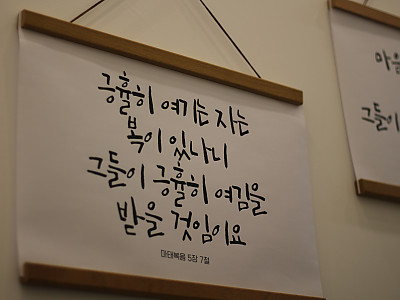 긍휼히 여기는 자는
복이 있나니
그들이 긍휼히 여김을
받을 것임이요
마태복음 5장 7절
마음
그들이